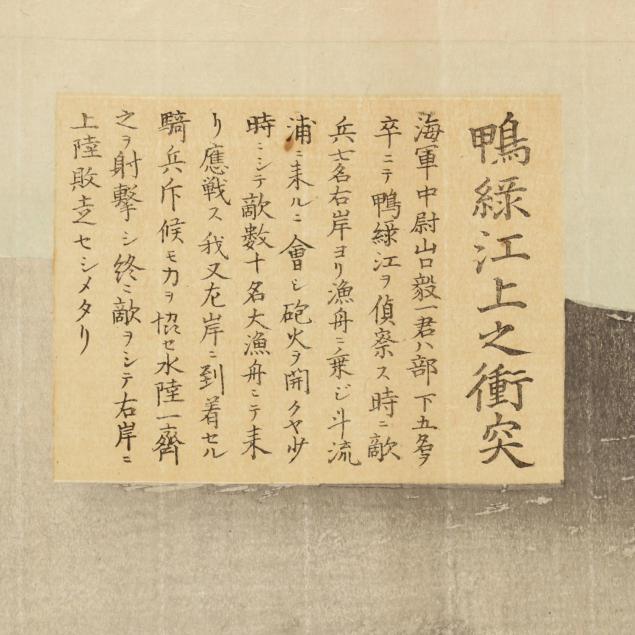 鴨緑江上之衝突
海軍中尉山口毅一君ハ部下五名ヲ
卒ニテ鴨緑江ヲ偵察ス時ニ敵
兵七名右岸ヨリ漁舟ニ乗ジ斗流
浦ニ来ルニ會シ砲火ヲ開クヤ少
時ニシテ敵数十名大漁舟ニテ来
リ應戦ス我又左岸ニ到着セル
騎兵斥候モ力ヲ協セ水陸一齊
之ヲ射撃シ終ニ敵ヲシテ右岸ニ
上陸敗走セシメタリ